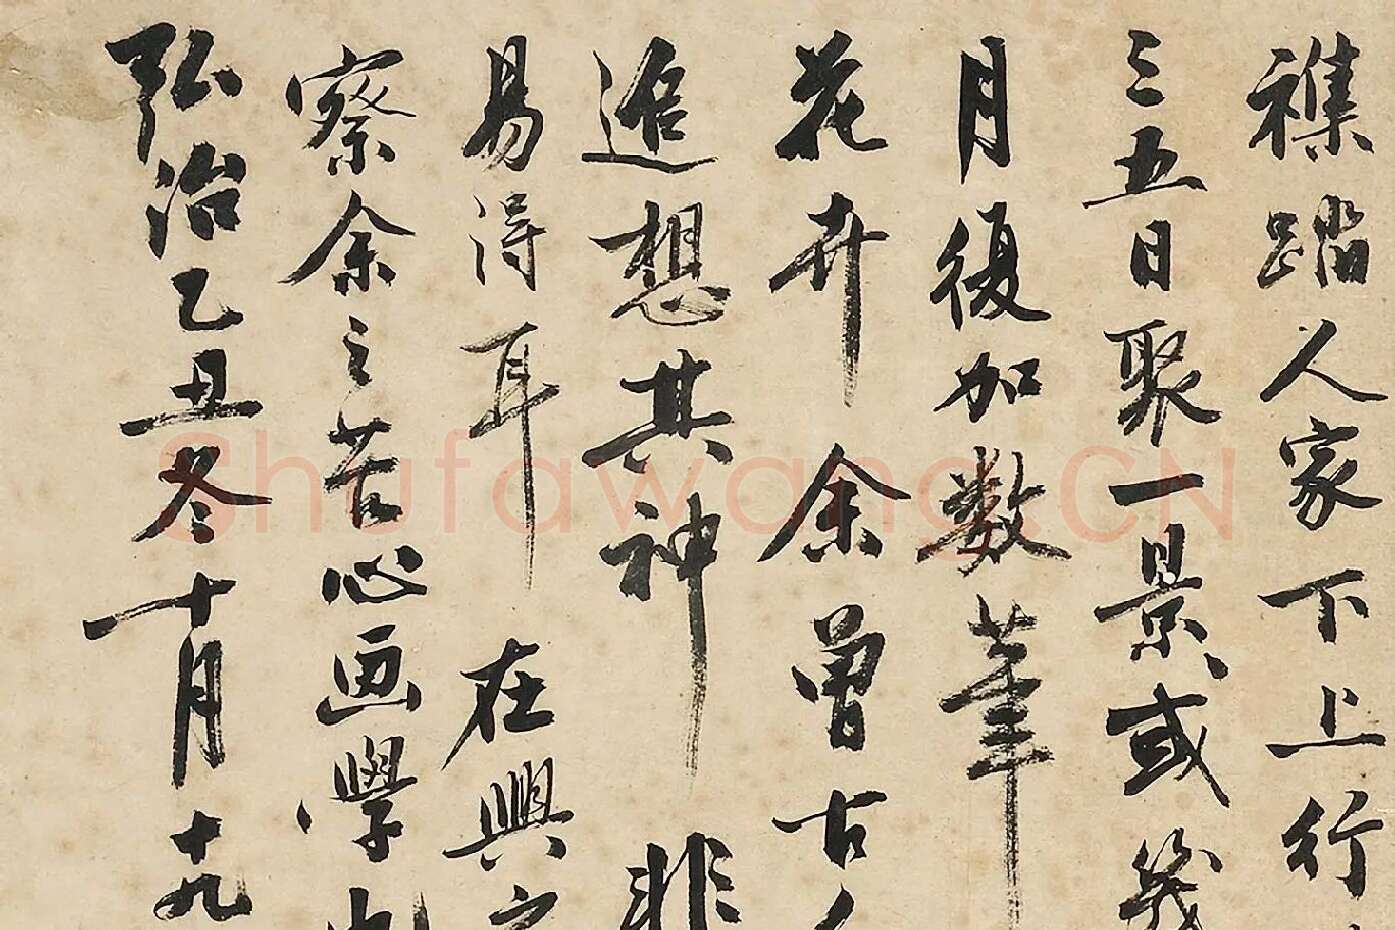 襍踏人家下上行
三五日聚一景或幾
月復加數筆
花卉余曾古人
追想其神非
易得耳在興之
察余之苦心画學
弘治乙丑冬十月十九
Shufawang.CN